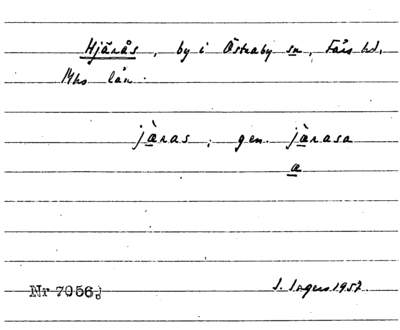 Hjärås, by i Östraby sn, Färs hd,
Mhs län.
jä̀ras; gen. jä̀rasa
a
Nr 7056.
S. Ingers 1957.